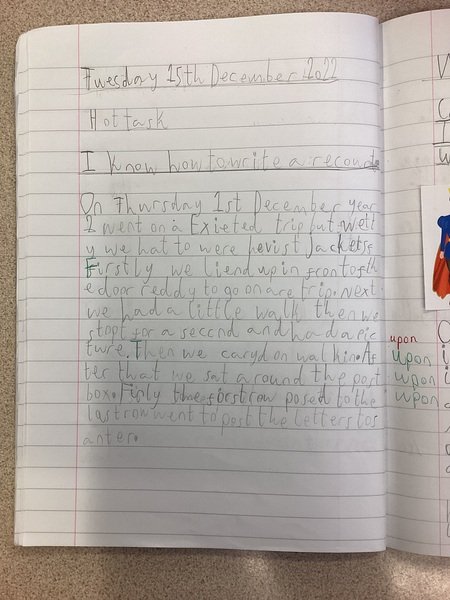 Tuesday 15th December 2022
Hot task
I know how to write a recount.
On Thursday 1st December year
2 went on a Exiteted trip but wett
y we hat to were hevist Jackets.
Firstly we liend up in front of th
e door reddy to go on are trip. Next
we had a little walk then we
stopt for a second and had a pic
ture. Then we caryd on walkin. Af
ter that we sat around the post
box. Finly the forst row posed to the
last row went to post the letters to s
anter.
upon
upon
upon
upon